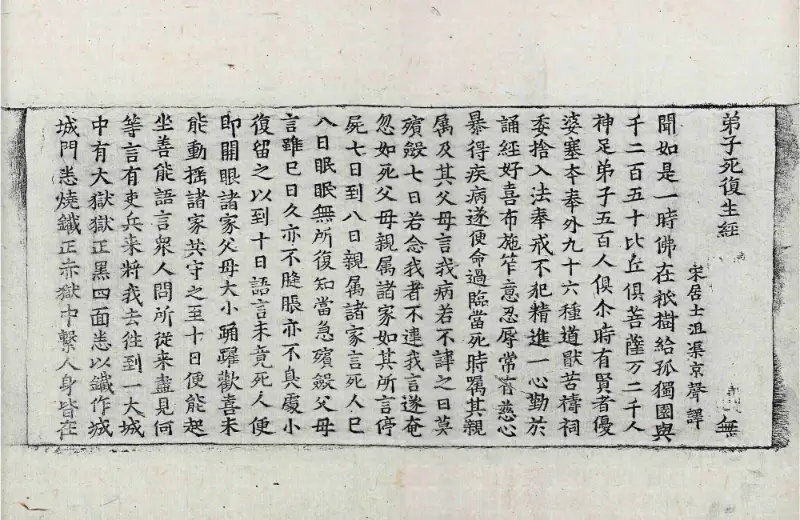 弟子死復生經 無
宋居士沮渠京聲譯
聞如是一時佛在祇樹給孤獨園與
千二百五十比丘俱菩薩万二千人
神足弟子五百人俱尒時有賢者優
婆塞夲奉外九十六種道猒苦禱祠
委捨入法奉戒不犯精進一心勤於
誦經好喜布施笮意忍辱常有慈心
暴得疾病遂便命過臨當死時囑其親
属及其父母言我病若不諱之日莫
殯殮七日若念我者不違我言遂奄
忽如死父母親属諸家如其所言停
屍七日到八日親属諸家言死人已
八日眠眠無所復知當急殯殮父母
言雖已日久亦不膖脹亦不臭處小
復留之以到十日語言未竟死人便
即開眼諸家父母大小踊躍歡喜未
能動摇諸家共守之至十日便能起
坐善能語言衆人問所從来盡見何
等言有吏兵来將我去徃到一大城
中有大獄獄正黑四面悉以鐵作城
城門悉燒鐵正赤獄中繫人身皆在